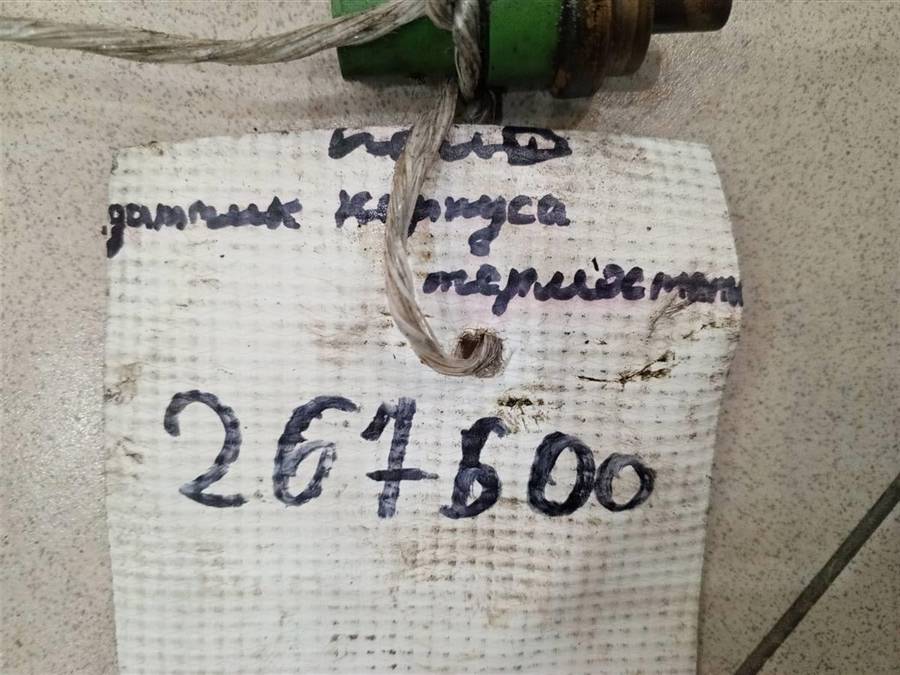 датчик корпуса
термостата
267600